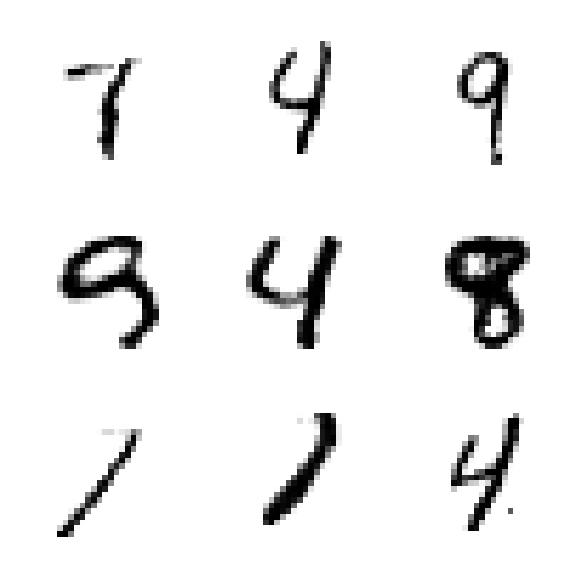 7 4 9
9 4 8
7 7 4